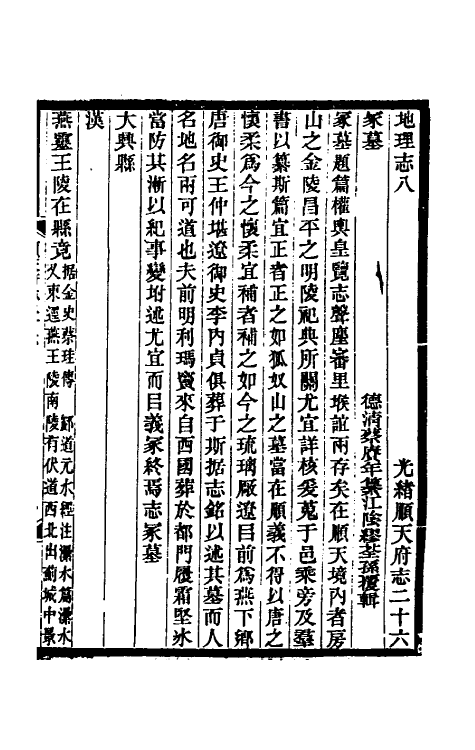 地理志八 光緒順天府志二十六
冢墓 德清蔡賡年纂江陰繆荃孫覆輯
冢墓題篇權輿皇覽志聲塵審里堠誼兩存矣在順天境內者房
山之金陵昌平之明陵祀典所關尤宜詳核爰蒐于邑乘旁及羣
書以纂斯篇宜正者正之如狐奴山之墓當在順義不得以唐之
懷柔為今之懷柔宜補者補之如今之琉璃厰遼目前為燕下鄉
唐御史王仲堪遼御史李內貞俱葬于斯据志銘以述其墓而人
名地名兩可道也夫前明利瑪竇來自西國葬於都門履霜堅冰
當防其漸以紀事變坿述尤宜而目義冢終焉志冢墓
大興縣
漢
燕靈王陵在縣竟
据金史蔡珪傳 酈道元水經注灅水篇灅水
又東逕燕王陵南陵有伏道西北出薊城中景